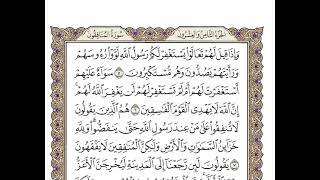 الجزء الثامن والعشرون
سورة المنافقون
وَإِذَا قِيلَ لَهُمْ تَعَالَوْا يَسْتَغْفِرْ لَكُمْ رَسُولُ اللَّهِ لَوَّوْا رُءُوسَهُمْ
وَرَأَيْتَهُمْ يَصُدُّونَ وَهُم مُّسْتَكْبِرُونَ ٥ سَوَاءٌ عَلَيْهِمْ
أَسْتَغْفَرْتَ لَهُمْ أَمْ لَمْ تَسْتَغْفِرْ لَهُمْ لَن يَغْفِرَ اللَّهُ لَهُمْ
إِنَّ اللَّهَ لَا يَهْدِي الْقَوْمَ الْفَاسِقِينَ ٦ هُمُ الَّذِينَ يَقُولُونَ
لَا تُنفِقُوا عَلَىٰ مَنْ عِندَ رَسُولِ اللَّهِ حَتَّىٰ يَنفَضُّوا وَلِلَّهِ
خَزَائِنُ السَّمَاوَاتِ وَالْأَرْضِ وَلَٰكِنَّ الْمُنَافِقِينَ لَا يَفْقَهُونَ
٧ يَقُولُونَ لَئِن رَّجَعْنَا إِلَى الْمَدِينَةِ لَيُخْرِجَنَّ الْأَعَزُّ